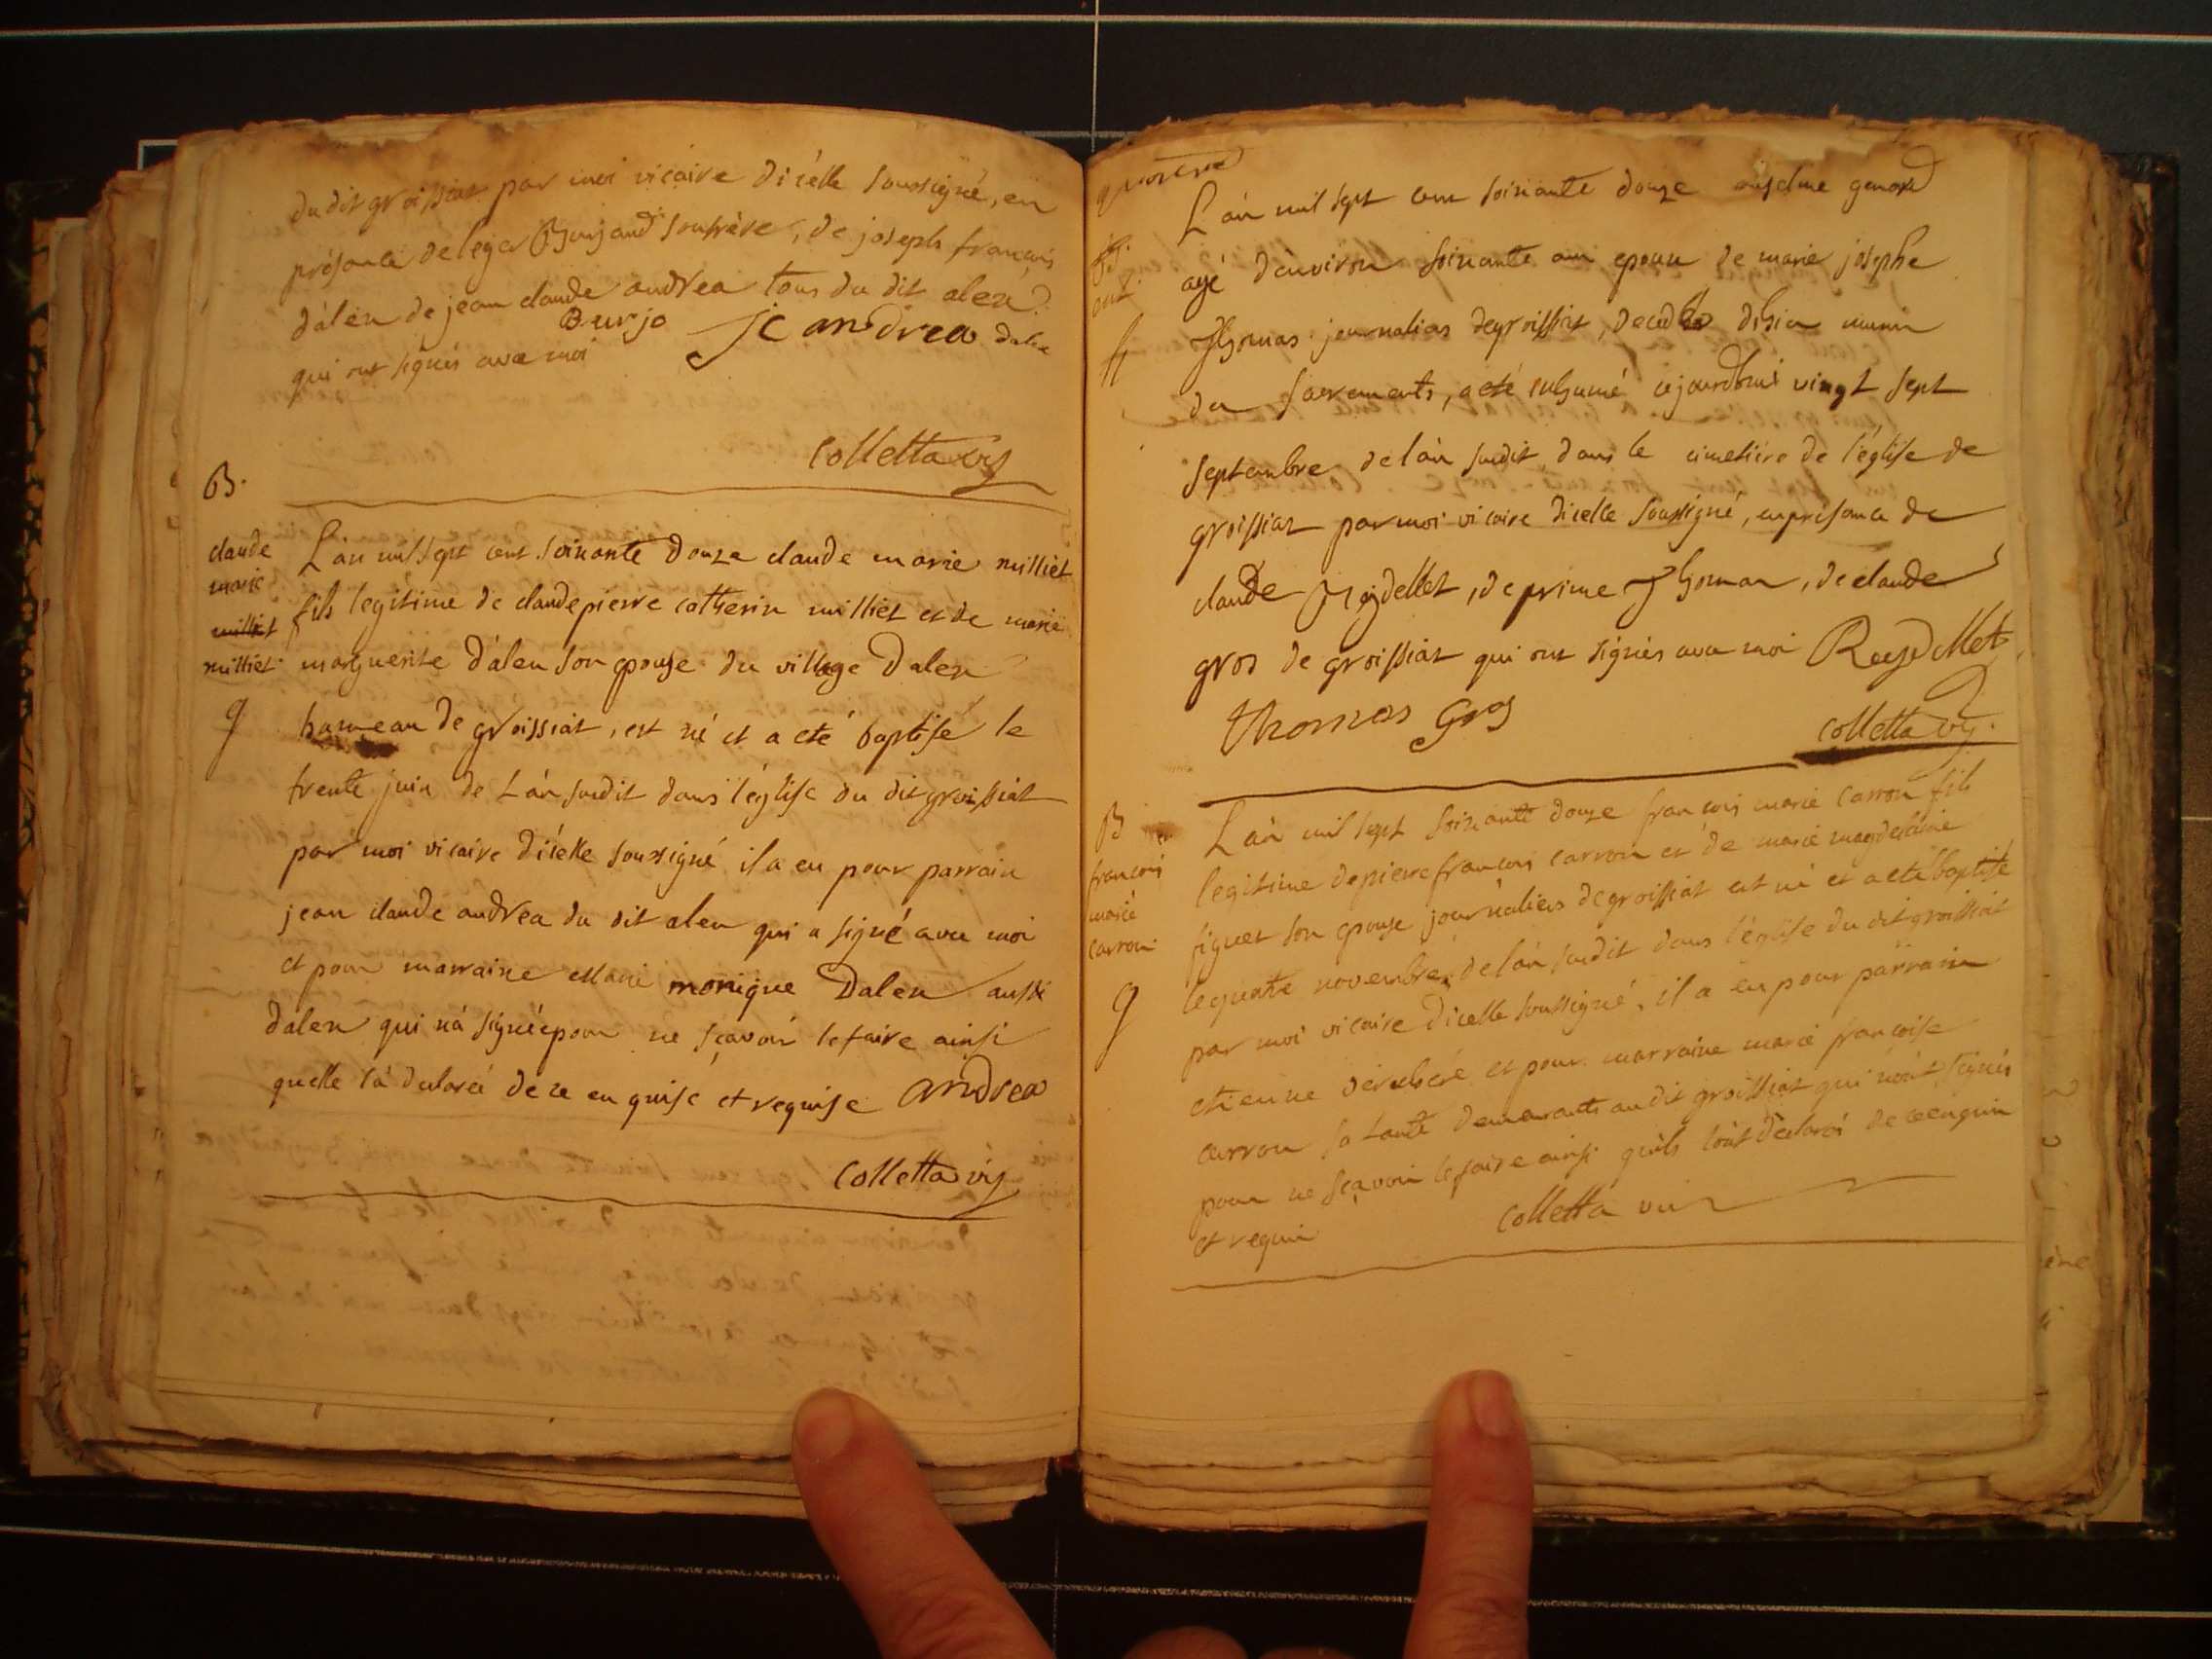 du dit groissiat par moi vicaire dicélle soussigné, en
présance de leger Burjaud son frère, de joseph francois
dálen de jean claude andrea tous du dit alen
Burjo JC andrea Dalen
qui ont signés avec moi
Colletta vic
B.
claude
marie
milliet
milliet
9
Lán mil sept cent soixante douze claude marie milliet
fils legitime de claude pierre catherin milliet et de marie
marguerite dálen son epouse du village Dalen
hameau de groissiat, est né et a eté baptisé le
trente juin de Lán susdit dans l'église du dit groissiat
par moi vicaire dicélle soussigné il a eu pour parrain
jean claude andrea du dit alen qui a signé avec moi
et pour marraine marie monique Dalen aussi
dalen qui ná signée pour ne sçavoir le faire ainsi
quelle lá declareé de ce enquise et requise andrea
Colletta vic
L'án mil sept cent soixante douze genord
agé dénviron soixante ans epoux de marie josephe
Thomas journalier de groissiat, decedé muni
des sacrements, a eté inhumé ajourdhui vingt sept
septembre de lán susdit dans le cimetiére de l'église de
groissiat par moi vicaire dicelle soussigné, en présance de
claude Reydellet, de prime Thomas, de claude
gros de groissiat qui ont signés avec moi Reydellet
thomas gros
Colletta vic.
B
francois
marie
carron
9
L'án mil sept soixante douze francois marie carron fils
legitime de pierre francois carron et de marie magdelaine
figuet son epouse journaliers de groissiat est né et a eté baptisé
le quatre novembre de lán susdit dans l'église du dit groissiat
par moi vicaire dicelle soussigné, il a eu pour parrain
etienne et pour marraine marie francoise
carron sa tante demeurants au dit groissiat qui nónt signés
pour ne sçavoir le faire ainsi quils lónt déclarés de ce enquis
et requis Colletta vic